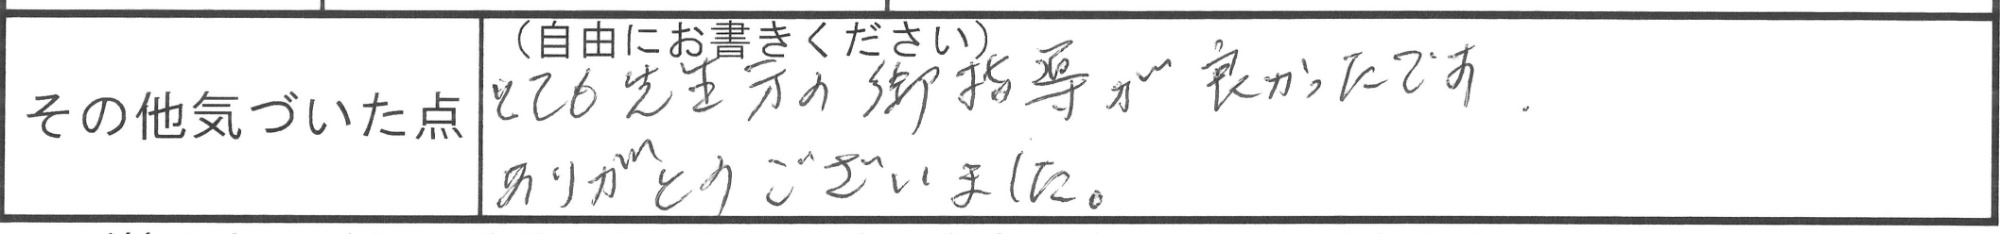 その他気づいた点
（自由にお書きください）
とても先生方の御指導が良かったです.
ありがとうございました。